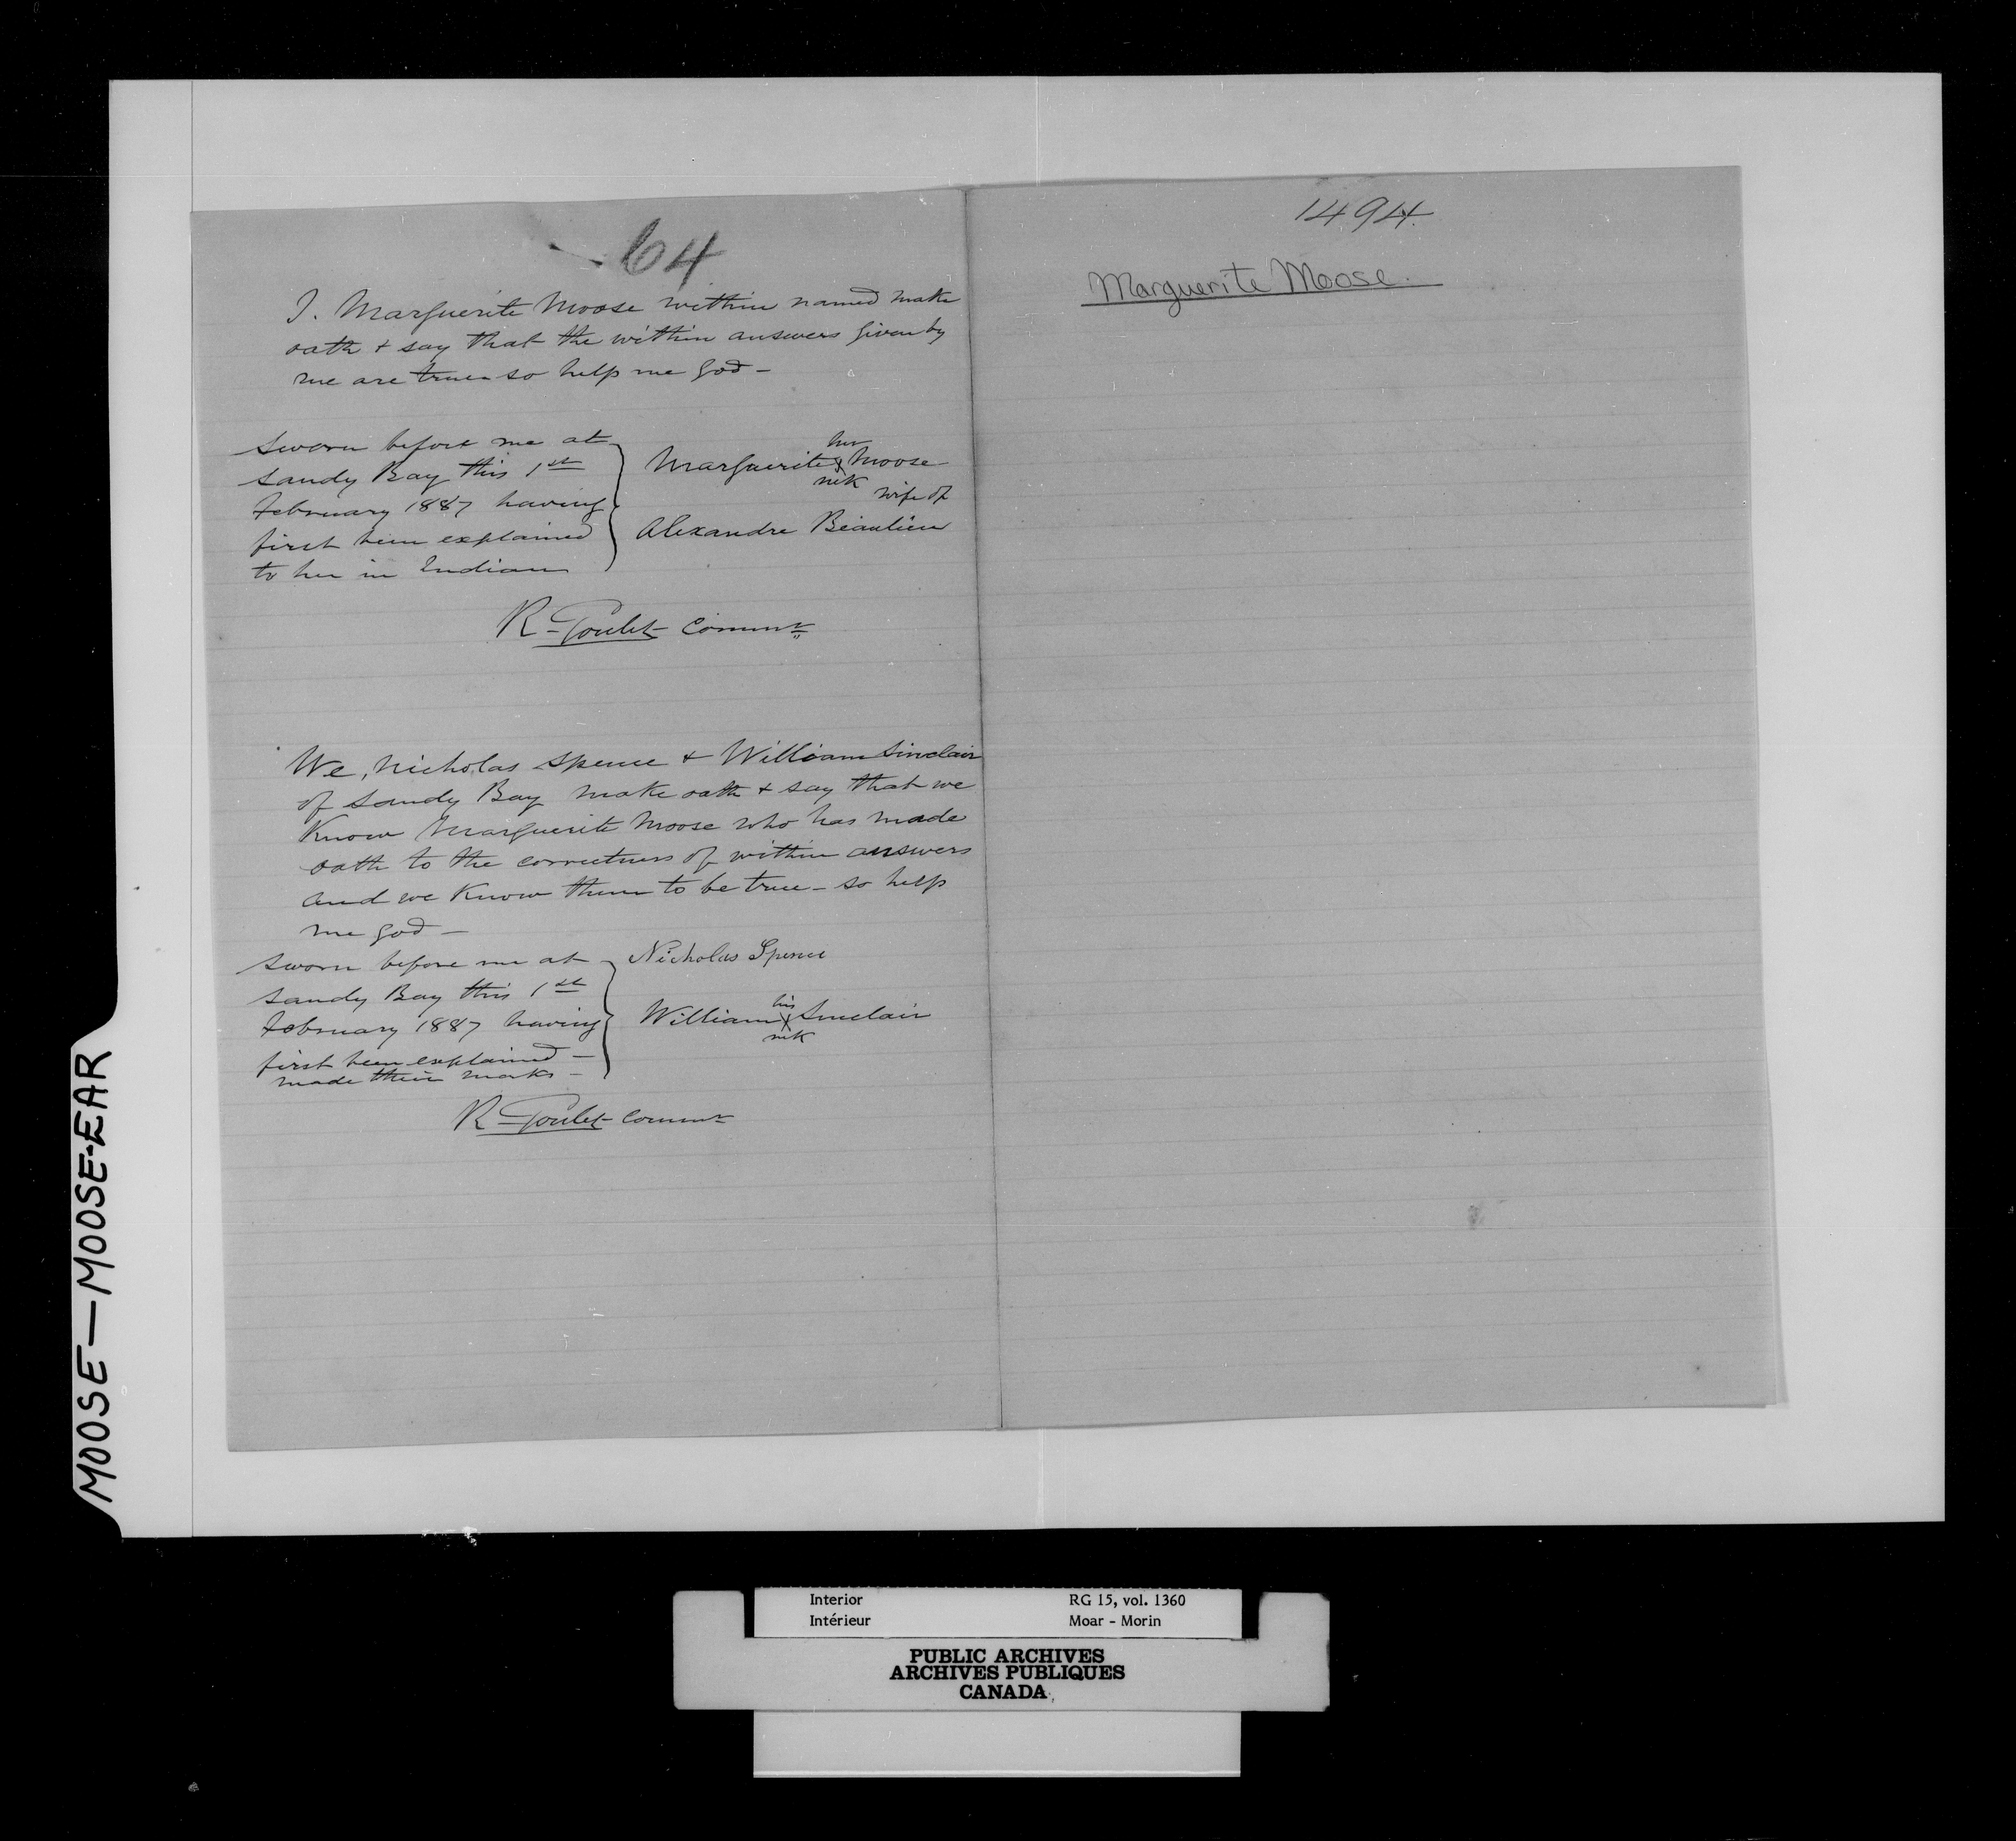 64
I. Marguerite Moose within named make
oath + say that the within answers given by
me are true so help me god -
Sworn before me at
Sandy Bay this 1st
February 1887 having
first been explained
to her in Indian
her
Marguerite X Moose
mk
wife of
Alexandre Beaulieu
R Goulet Commr
We, Nicholas Spence + William Sinclair
of Sandy Bay make oath + say that we
Know Marguerite Moose who has made
oath to the correctness of within answers
and we Know them to be true - so help
me god -
Sworn before me at
Sandy Bay this 1st
February 1887 having
first been explained -
made their marks -
Nicholas Spence
his
William X Sinclair
mk
R Goulet Commr
1494.
Marguerite Moose.
MOOSE — MOOSE-EAR
Interior
Intérieur
RG 15, vol. 1360
Moar - Morin
PUBLIC ARCHIVES
ARCHIVES PUBLIQUES
CANADA